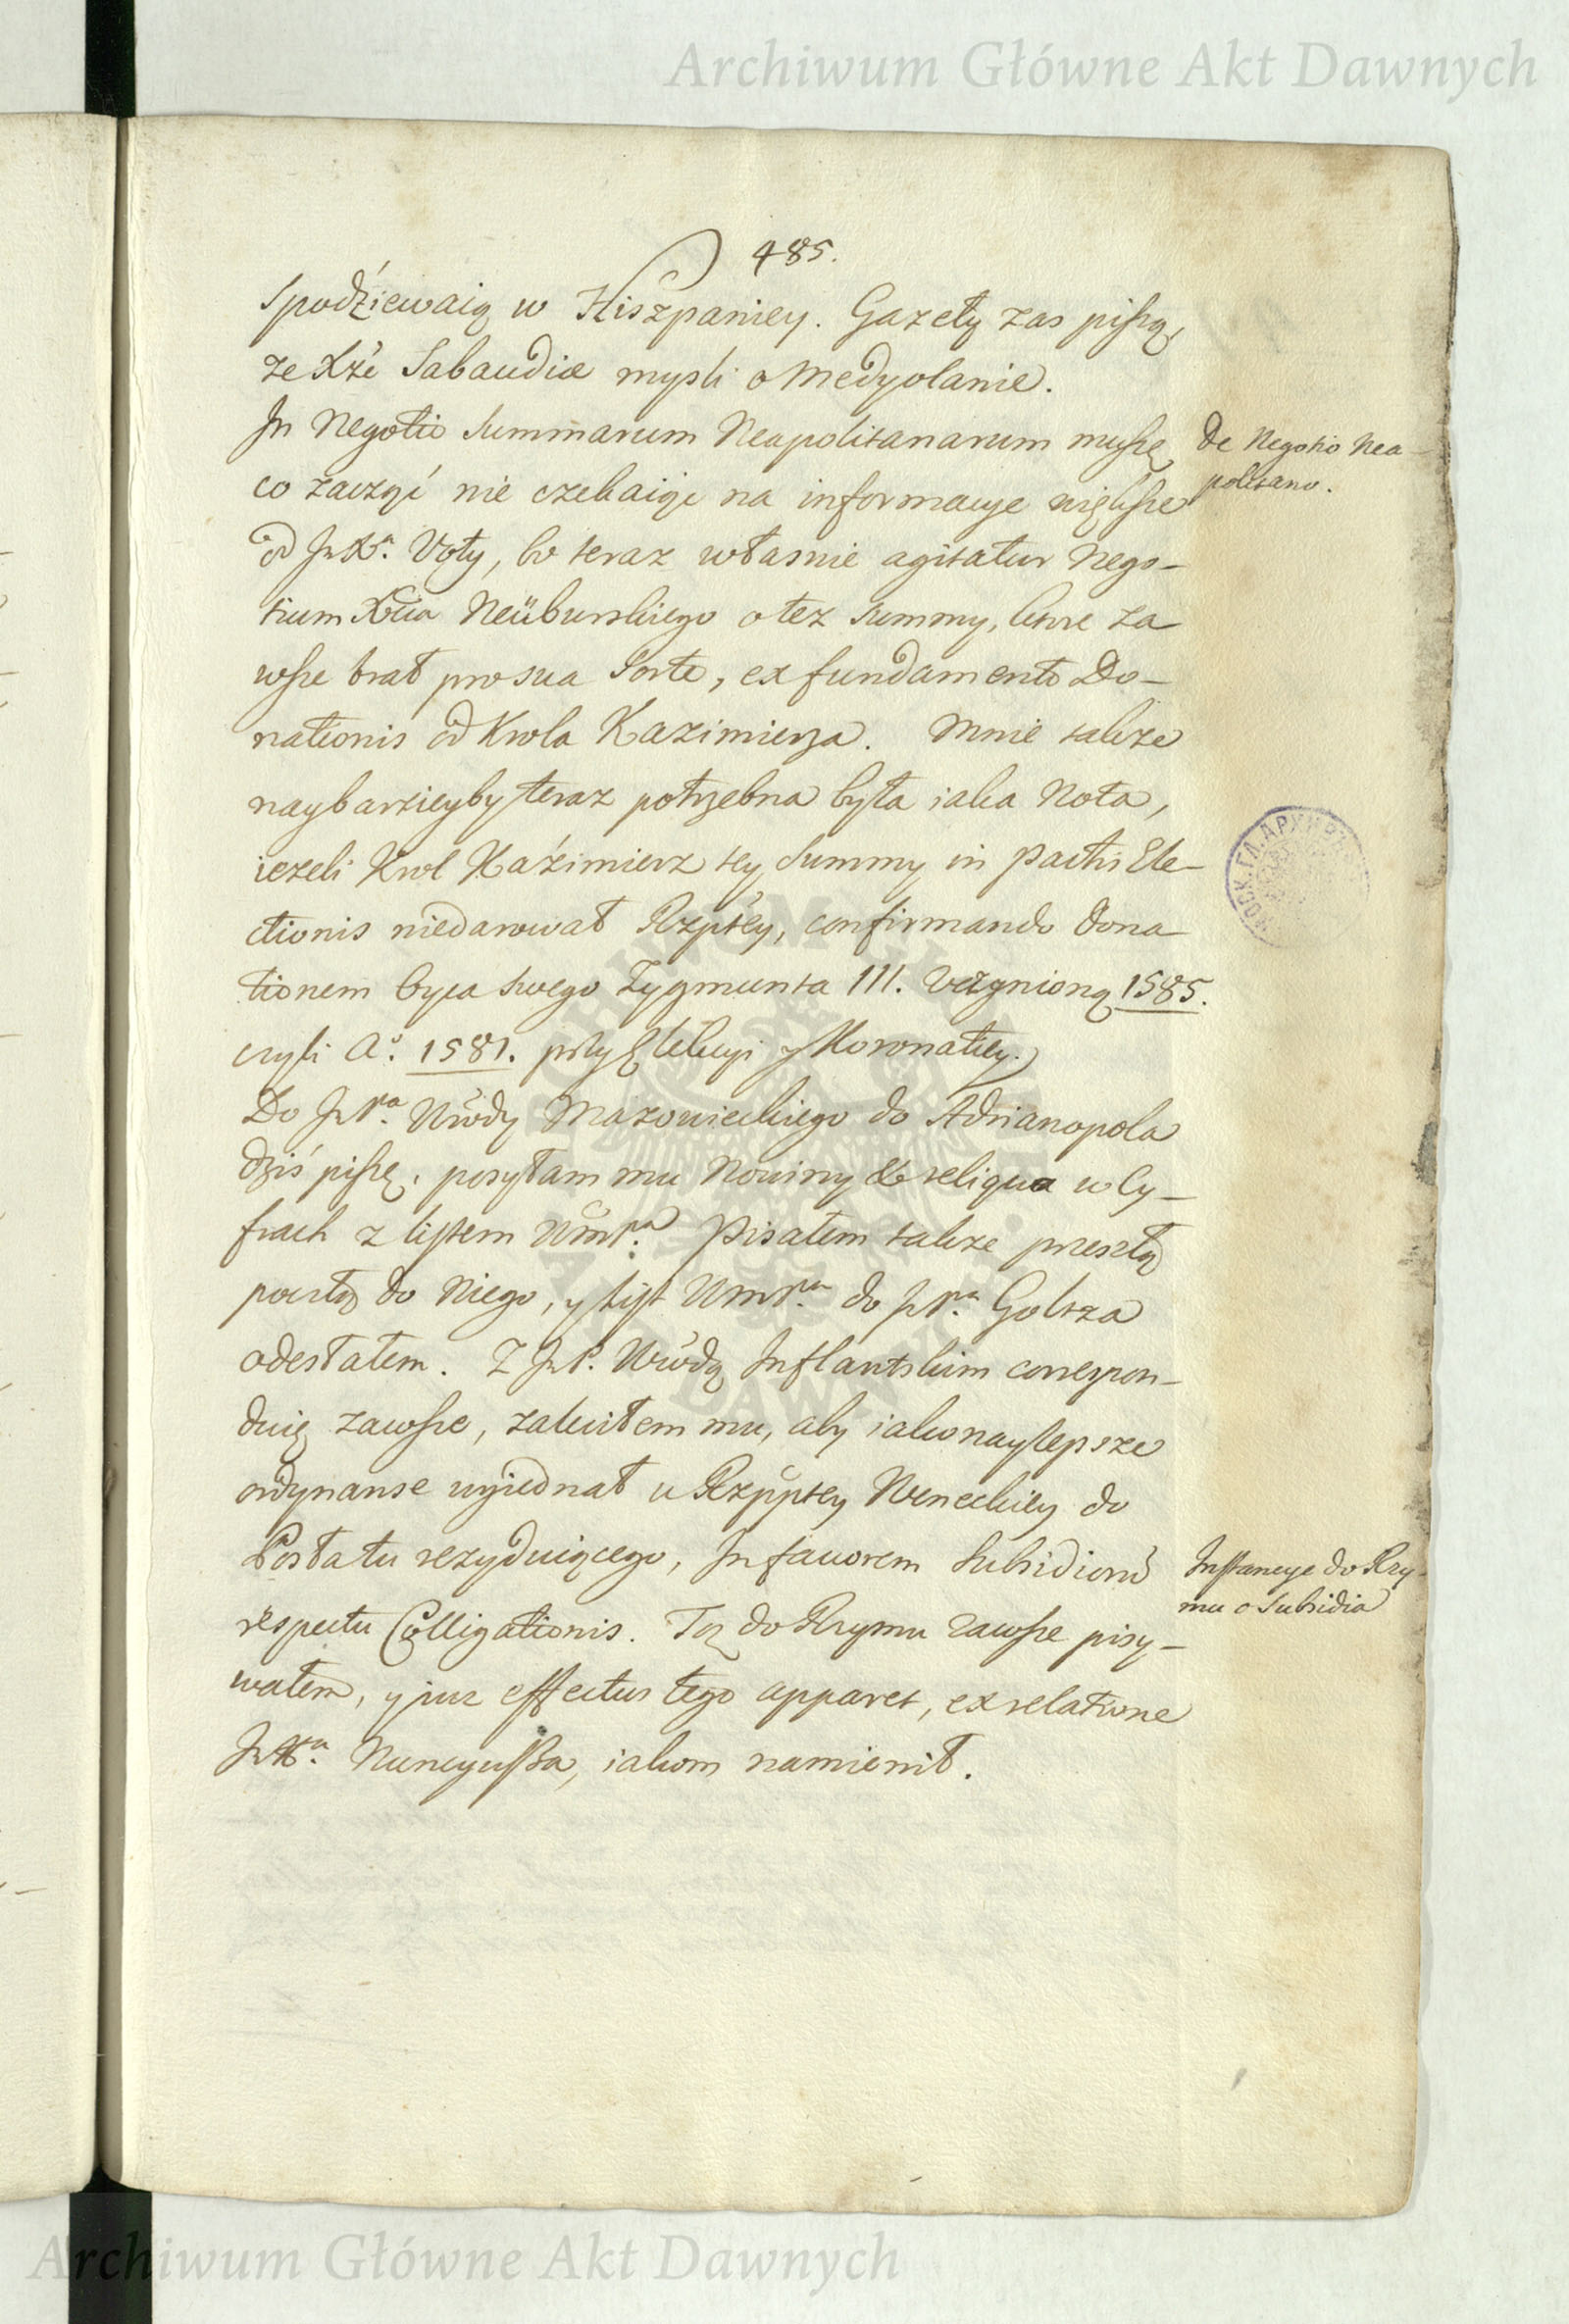 Archiwum Główne Akt Dawnych
485.
spodźiewaią w Hiszpaniey. Gazety zas piszą,
ze Xże Sabaudiæ mysli o Medyolanie.
In Negotio Summarum Neapolitanarum muszę
co zacząć nie czekaiąc na informacye większe
od JmXa. Voty, bo teraz własnie agitatur Nego-
tium Xcia Neüburskiego o tez Summy, ktore za
wsze brał pro sua Sorte, ex fundamento Do-
nationis od Krola Kazimierza. Mnie takze
naybarzieyby teraz potrzebna była iaka Nota,
iezeli Krol Kaźimierz tey Summy in Pactis Ele-
ctionis niedarował Rzptey, confirmando Dona-
tionem Oyca swego Zygmunta III. Uczynioną 1585.
czyli Aº. 1581. przy Elekcyi y Koronatiey.
Do JmPa. Wwody Mazowieckiego do Adrianopola
dziś piszę, posyłam mu Nowiny & reliqua w Cy-
frach z listem WmPa. Pisałem takze przeszłą
pocztą do Niego, y list WmPa. do JmPa. Goltza
odesłałem. Z JmP. Wwodą Inflantskim correspon-
duię zawsze, zaleciłem mu, aby iako naylepsze
ordynanse wyiednał u Rzpptey Weneckiey do
Posła tu rezyduiącego, In favorem Subsidiorũ
respectu Colligationis. Toz do Rzymu zawsze pisy-
wałem, y juz effectus tego apparet, ex relatione
JmXa. Nuncyusza, iakom namienił.
De Negotio Nea-
politano.
Instancye do Rzy-
mu o Subsidia
Archiwum Główne Akt Dawnych